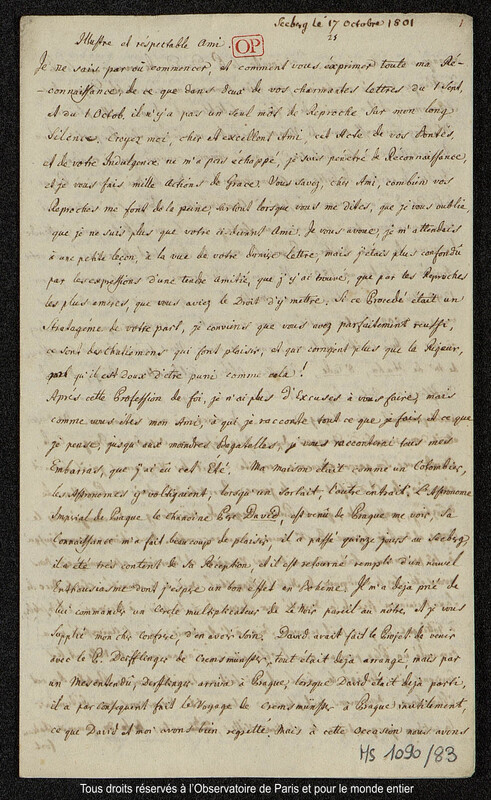 Seeberg le 17 Octobre 1801
21
1
Illustre et réspectable Ami.
OP
Je ne sais par où commencer, et comment vous éxprimer toute ma Ré-
-connaissance, de ce que dans deux de vos charmantes lettres du 1 Sept.
et du 1 Octob. il n'y a pas un seul mot de Reproche sur mon long
Silence. Croyez moi, cher et excellent Ami, cet Acte de vos Bontés,
et de votre Indulgence ne m'a pas echappé, je suis pénétré de Réconnaissance,
et je vous fais mille Actions de Grace. Vous savez, cher Ami, combien vos
Reproches me font de la peine, surtout lorsque vous me dites, que je vous oublie,
que je ne suis plus que votre Ami. Je vous avoue, je m'attendais
à une petite leçon, à la vue de votre dernière lettre, mais j'étais plus confondu
par les expressions d'une tendre amitié, que j'y ai trouvé, que par les Reproches
les plus amères, que vous aviez le Droit d'y mettre. Si ce Procedé était un
Stratageme de votre part, je conviens que vous avez parfaitement reussi,
ce sont des Chatimens qui font plaisir, et qui corrigent plus que la Rigeur,
qu'il est doux d'etre puni comme cela!
Après cette Profession de foi, je n'ai plus d'Excuses à vous faire, mais
comme vous êtes mon Ami, à qui je raconte tout ce que je fais, et ce que
je pense, jusqu'aux moindres Bagatelles, je vous raconterai tous mes
Embarras, que j'ai eu cet Eté. Ma maison était comme un Colombier,
les Astronomes y voltigaient, lorsqu'un sortait, l'autre entrait. L'Astronome
Impérial de Prague le chanoine Père David, est venu de Prague me voir, sa
Connaissance m'a fait beaucoup de plaisir, il a passé quinze jours au Seeberg
il a été très content de sa Réception, et il est retourné rempli d'un nouvel
Enthousiasme dont j'espre un bon effet en Bohème. Il m'a deja prié de
lui commander un Cercle multiplicateur de le Noir pareil au nôtre, et je vous
supplie mon cher confrere d'en avoir soin. David avait fait le Projet de venir
avec le P. Derfflinger de Cremsmünster, tout était deja arrangé mais par
un Mesentendu, Derfflinger arriva à Prague, lorsque David était deja parti,
il a par conséquent fait le Voyage de Cremsmünst. à Prague inutilement,
ce que David et moi avons bien regretté. Mais à cette Occasion nous avons
MS 1090/83
Tous droits réservés à l'Observatoire de Paris et pour le monde entier